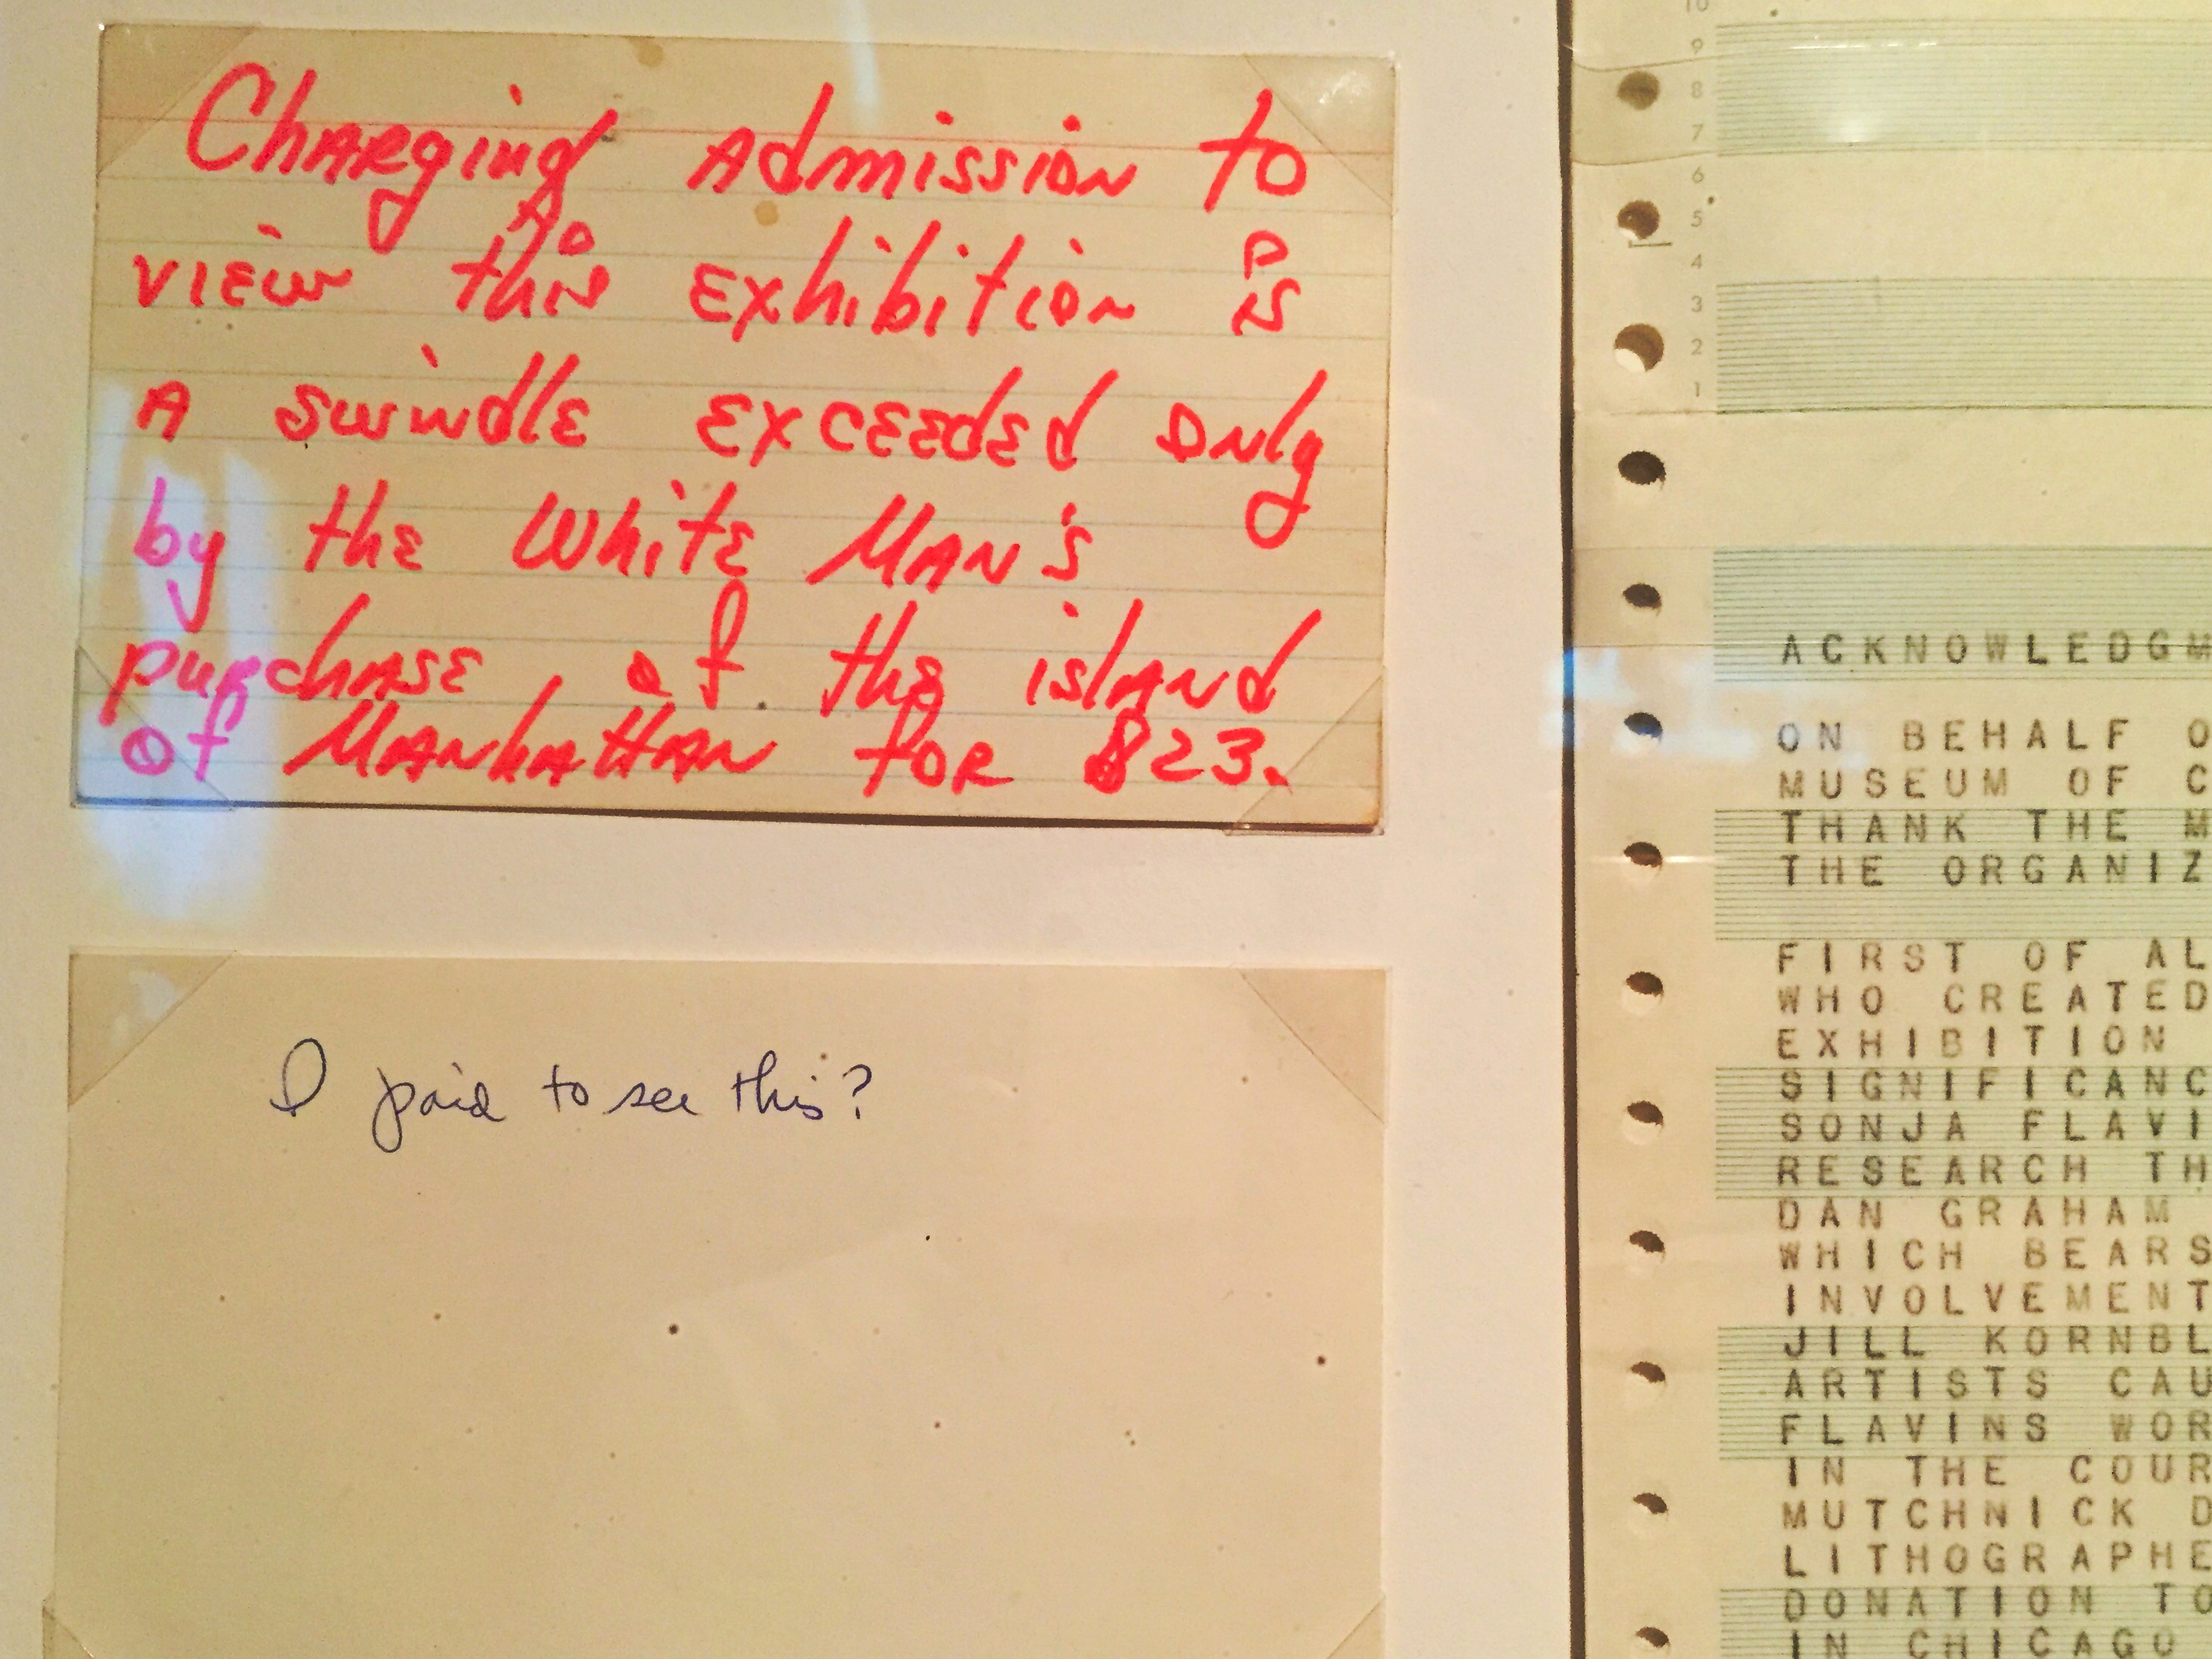 Charging Admission to
view this Exhibition is
A swindle exceeded only
by the White Man's
purchase of the island
of Manhattan for $23.
I paid to see this?
10
9
8
7
6
5
4
3
2
1
ACKNOWLEDGM
ON BEHALF O
MUSEUM OF C
THANK THE M
THE ORGANIZ
FIRST OF AL
WHO CREATED
EXHIBITION
SIGNIFICANC
SONJA FLAVI
RESEARCH TH
DAN GRAHAM
WHICH BEARS
INVOLVEMENT
JILL KORNBL
ARTISTS CAU
FLAVINS WOR
IN THE COUR
MUTCHNICK D
LITHOGRAPHE
DONATION TO
IN CHICAGO